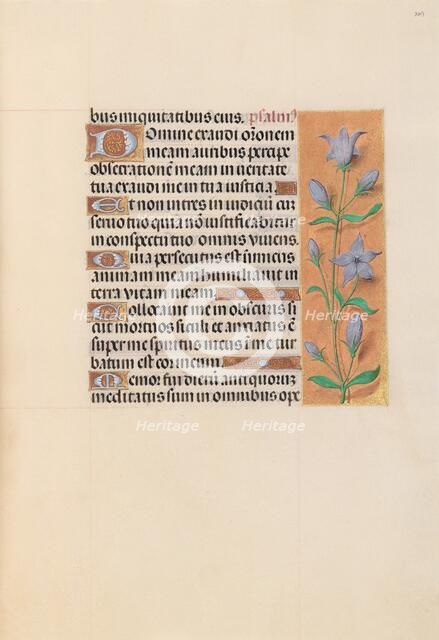 bus iniquitatibus eius. psalm9
Domine exaudi orõnem
meam auribus percipe
obsecrationẽ meam in ueritate
tua exaudi me in tua iusticia.
Et non intres in iudiciũ cũ
seruo tuo quia nõ iustificabitur
in conspectu tuo omnis viuens.
Quia persecutus est inimicus
animam meam humiliauit in
terra vitam meam.
Collocauit me in obscuris si
cut mortuos seculi et anxiatus ẽ
super me spiritus meus ĩ me tur
batum est cor meum.
Memor fui dierũ antiquorum
meditatus sum in omnibus ope
Heritage Heritage Heritage
Heritage Heritage Heritage